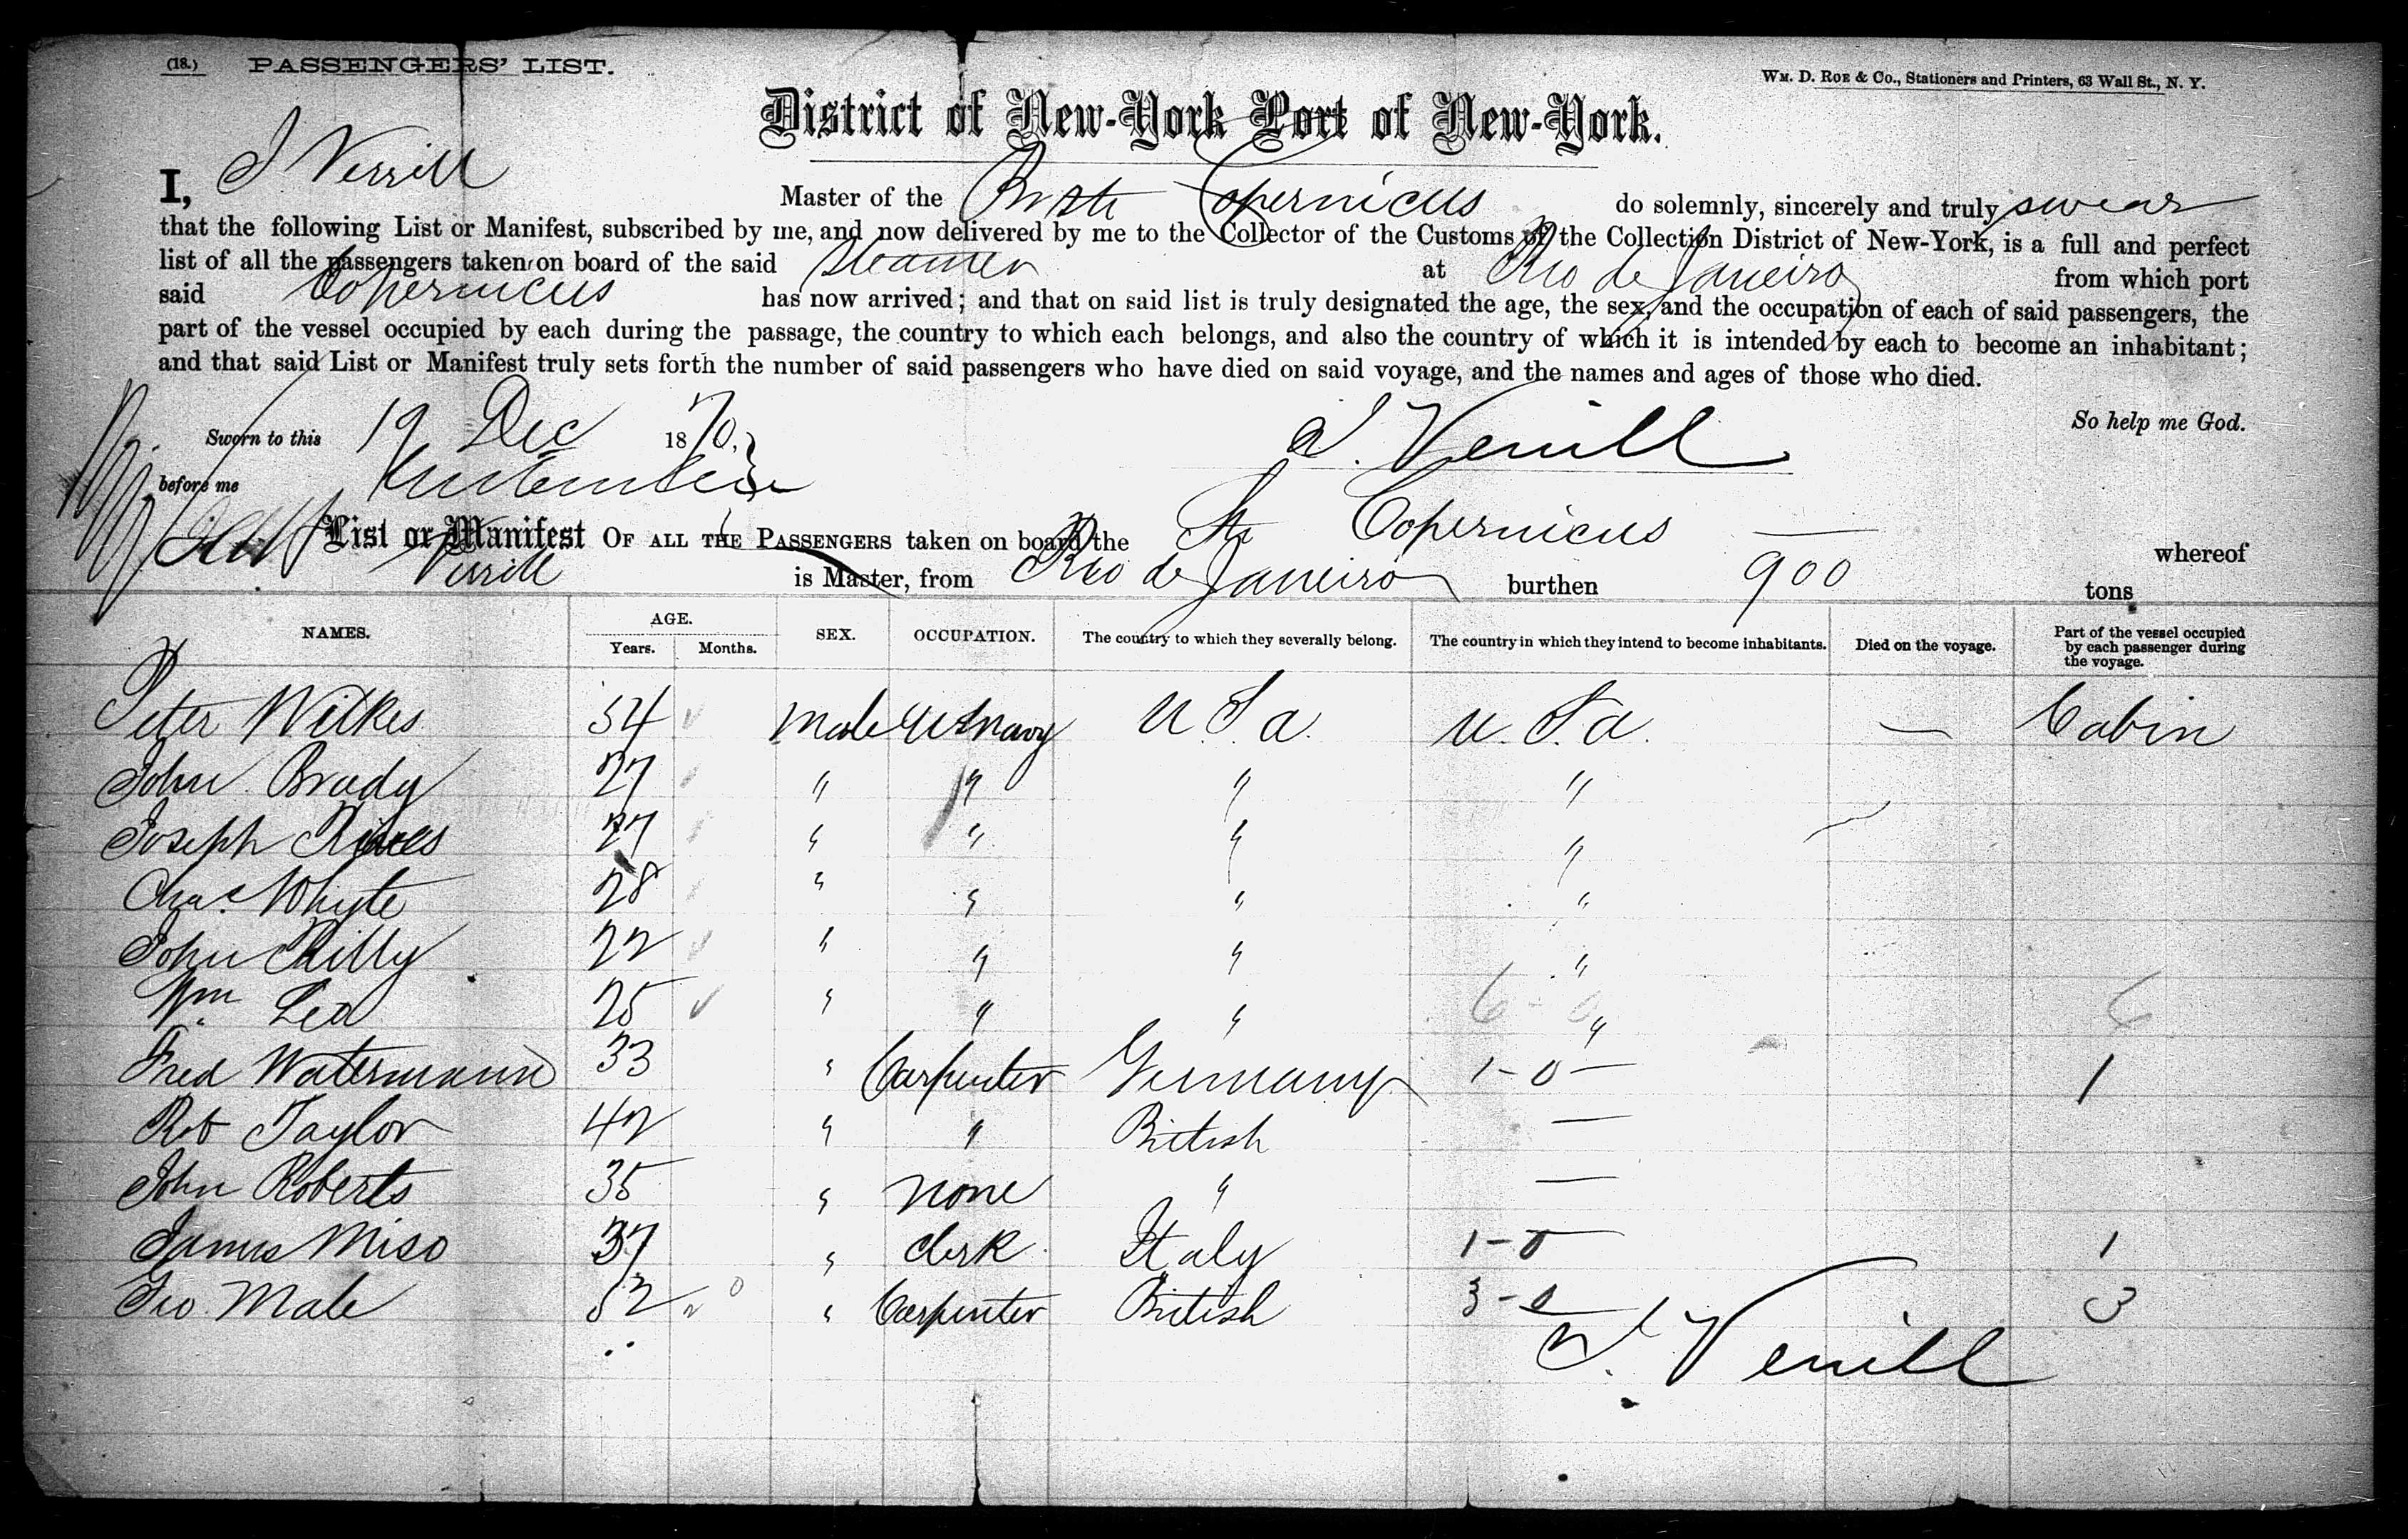 (18.) PASSENGERS' LIST.
Wm. D. Roe & Co., Stationers and Printers, 63 Wall St., N. Y.
District of New-York Port of New-York.
I, J Verrill Master of the Copernicus do solemnly, sincerely and truly swear
that the following List or Manifest, subscribed by me, and now delivered by me to the Collector of the Customs of the Collection District of New-York, is a full and perfect
list of all the passengers taken on board of the said Steamer at Rio de Janeiro from which port
said Copernicus has now arrived; and that on said list is truly designated the age, the sex, and the occupation of each of said passengers, the
part of the vessel occupied by each during the passage, the country to which each belongs, and also the country of which it is intended by each to become an inhabitant;
and that said List or Manifest truly sets forth the number of said passengers who have died on said voyage, and the names and ages of those who died.
So help me God.
Sworn to this 19 Dec 1870. J. Verrill
before me
List or Manifest OF ALL THE PASSENGERS taken on board the Str Copernicus whereof
Verrill is Master, from Rio de Janeiro burthen 900 tons
NAMES. AGE. Years. Months. SEX. OCCUPATION. The country to which they severally belong. The country in which they intend to become inhabitants. Died on the voyage. Part of the vessel occupied by each passenger during the voyage.
Peter Wilkes 34 Male US Navy U.S.a. U.S.a. — Cabin
John Brady 27 " " " "
Joseph 27 " " " "
Chas. Whyte 28 " " " "
John Reilly 22 " " " "
Wm Lea 25 " " " " 6-0 6
Fred Watermann 33 " Carpenter Germany 1-0- 1
Rob Taylor 42 " " British —
John Roberts 35 " none " —
James Miso 37 " clerk Italy 1-0 1
Geo. Male 52 " Carpenter British 3-0 3
J. Verrill